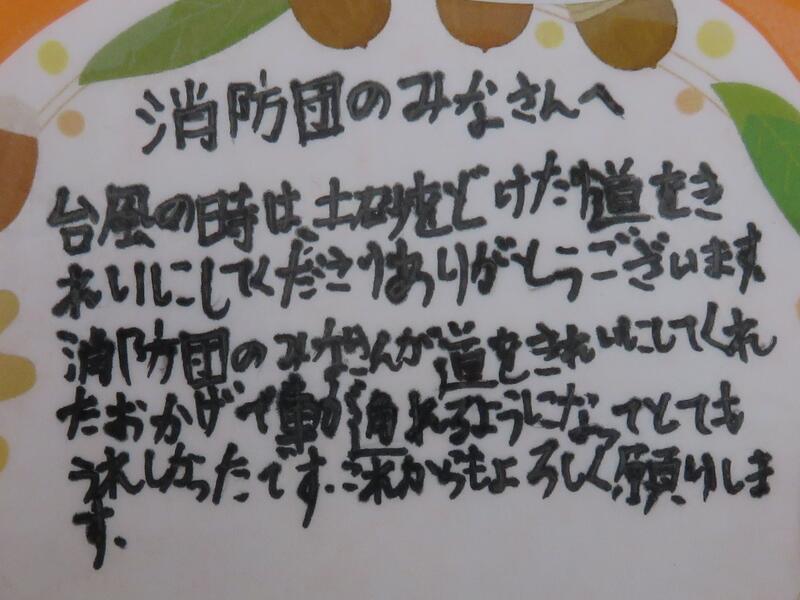 消防団のみなさんへ
台風の時は、土砂をどけたり道をき
れいにしてくださりありがとうございます。
消防団のみなさんが道をきれいにしてくれ
たおかげで車が通れるようになってとても
うれしかったです。これからもよろしく願いしま
す。